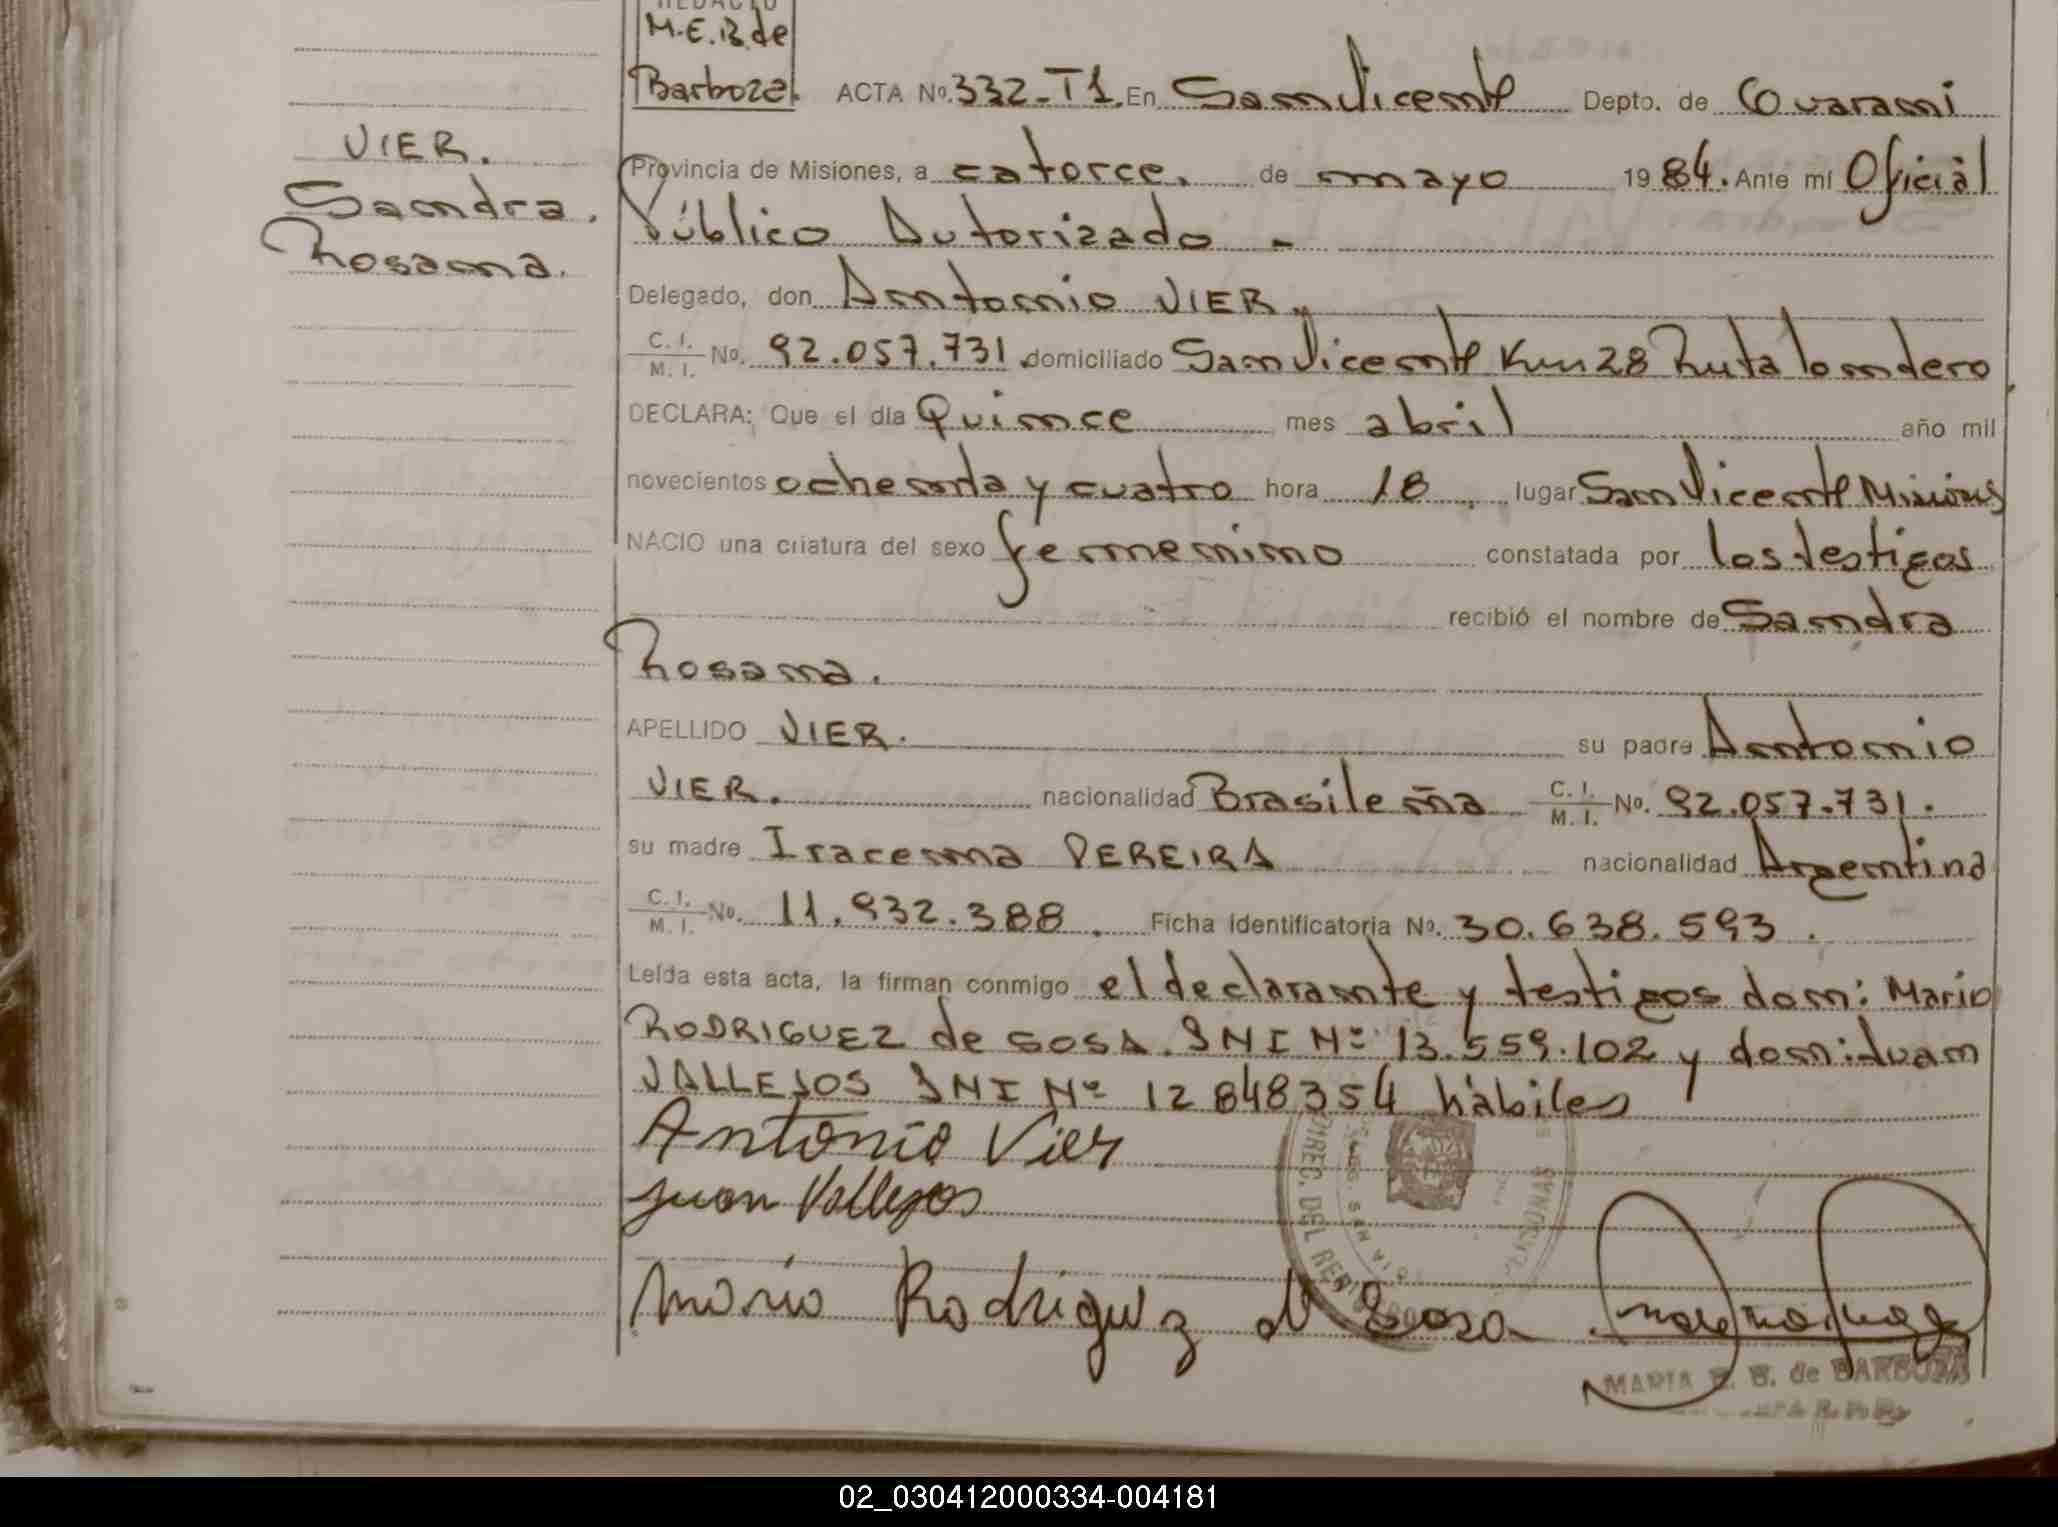 REDACTO
M.E.B. de
Barboza.
ACTA No. 332-T1. En San Vicente Depto. de Guarani
VIER.
Sandra.
Rosana.
Provincia de Misiones, a catorce. de mayo 1984. Ante mi Oficial
Público Autorizado -
Delegado, don Antonio VIER.
C. I. / M. I. No. 92.057.731 domiciliado San Vicente Km 28 Ruta londero
DECLARA: Que el día Quince mes abril año mil
novecientos ochenta y cuatro hora 18. lugar San Vicente Misiones
NACIO una criatura del sexo femenino constatada por los testigos
recibió el nombre de Sandra
Rosana.
APELLIDO VIER. su padre Antonio
VIER. nacionalidad Brasileña C. I. / M. I. No. 92.057.731.
su madre Iracema PEREIRA nacionalidad Argentina
C. I. / M. I. No. 11.932.388. Ficha identificatoria No. 30.638.593.
Leída esta acta, la firman conmigo el declarante y testigos don: Mario
RODRIGUEZ de SOSA. DNI Nº 13.559.102 y don: Juan
VALLEJOS DNI Nº 12848354 hábiles
Antonio Vier
Juan Vallejos
Mario Rodriguez d Sosa
DIREC. DEL REG
MARIA E. B. de BARBOZA
02_030412000334-004181